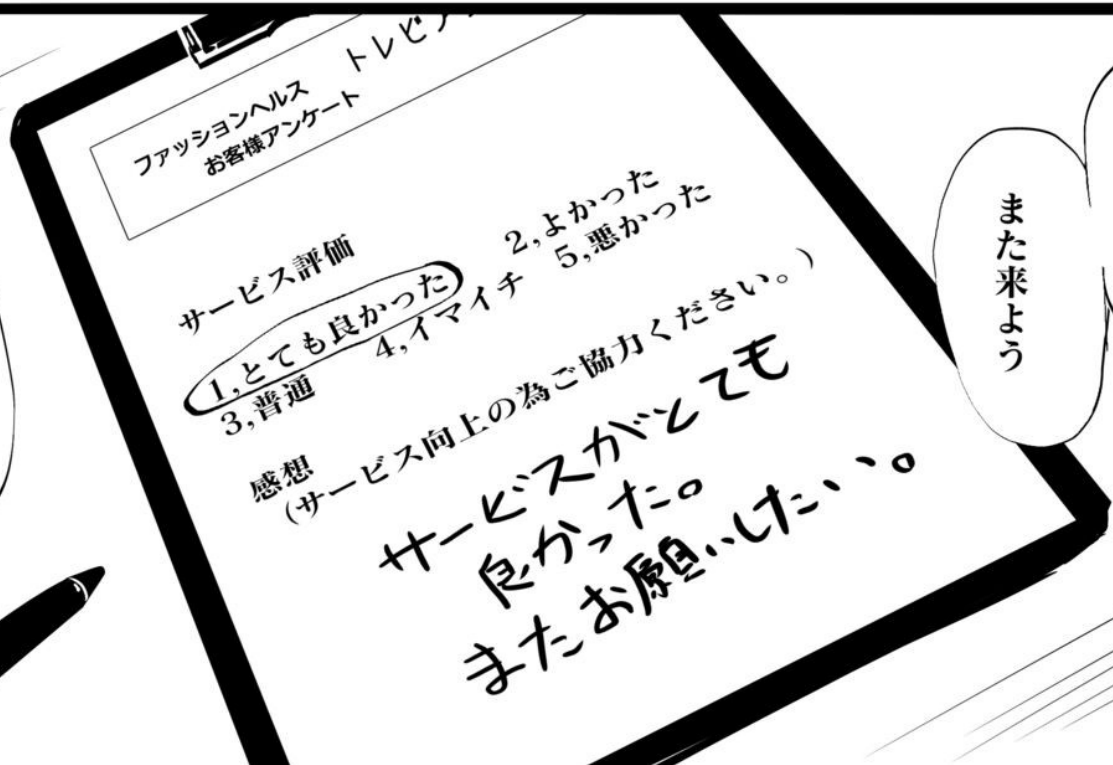 ファッションヘルス
トレビア
お客様アンケート
サービス評価
1,とても良かった
2,よかった
3,普通
4,イマイチ
5,悪かった
感想
(サービス向上の為ご協力ください。)
サービスがとても
良かった。
またお願いしたい。
また来よう